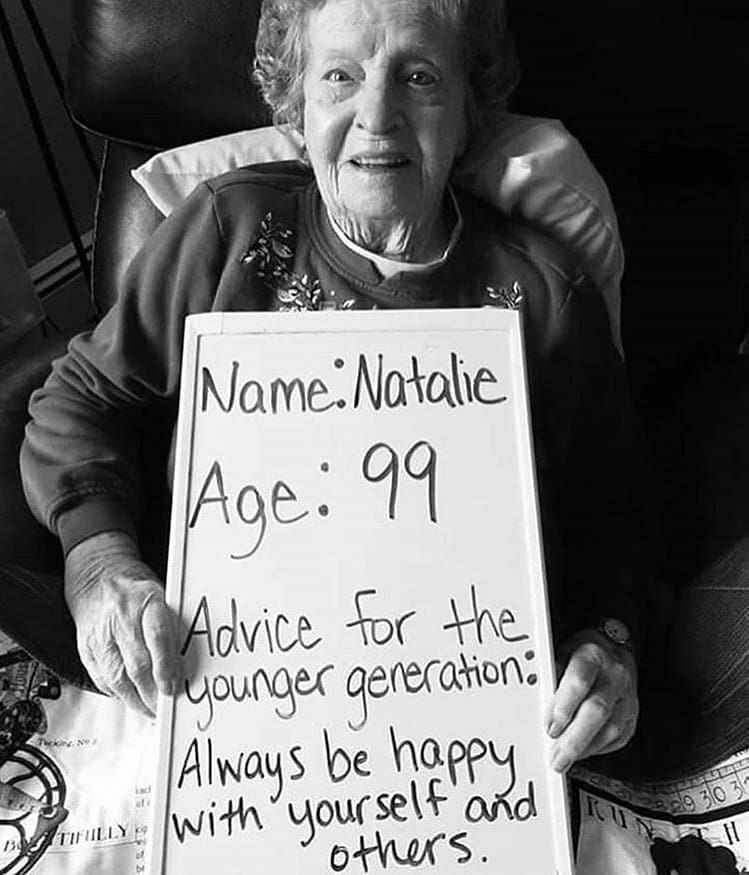 Name: Natalie
Age: 99
Advice for the
younger generation:
Always be happy
with yourself and
others.
TIFULLY
RUN
29 30 31